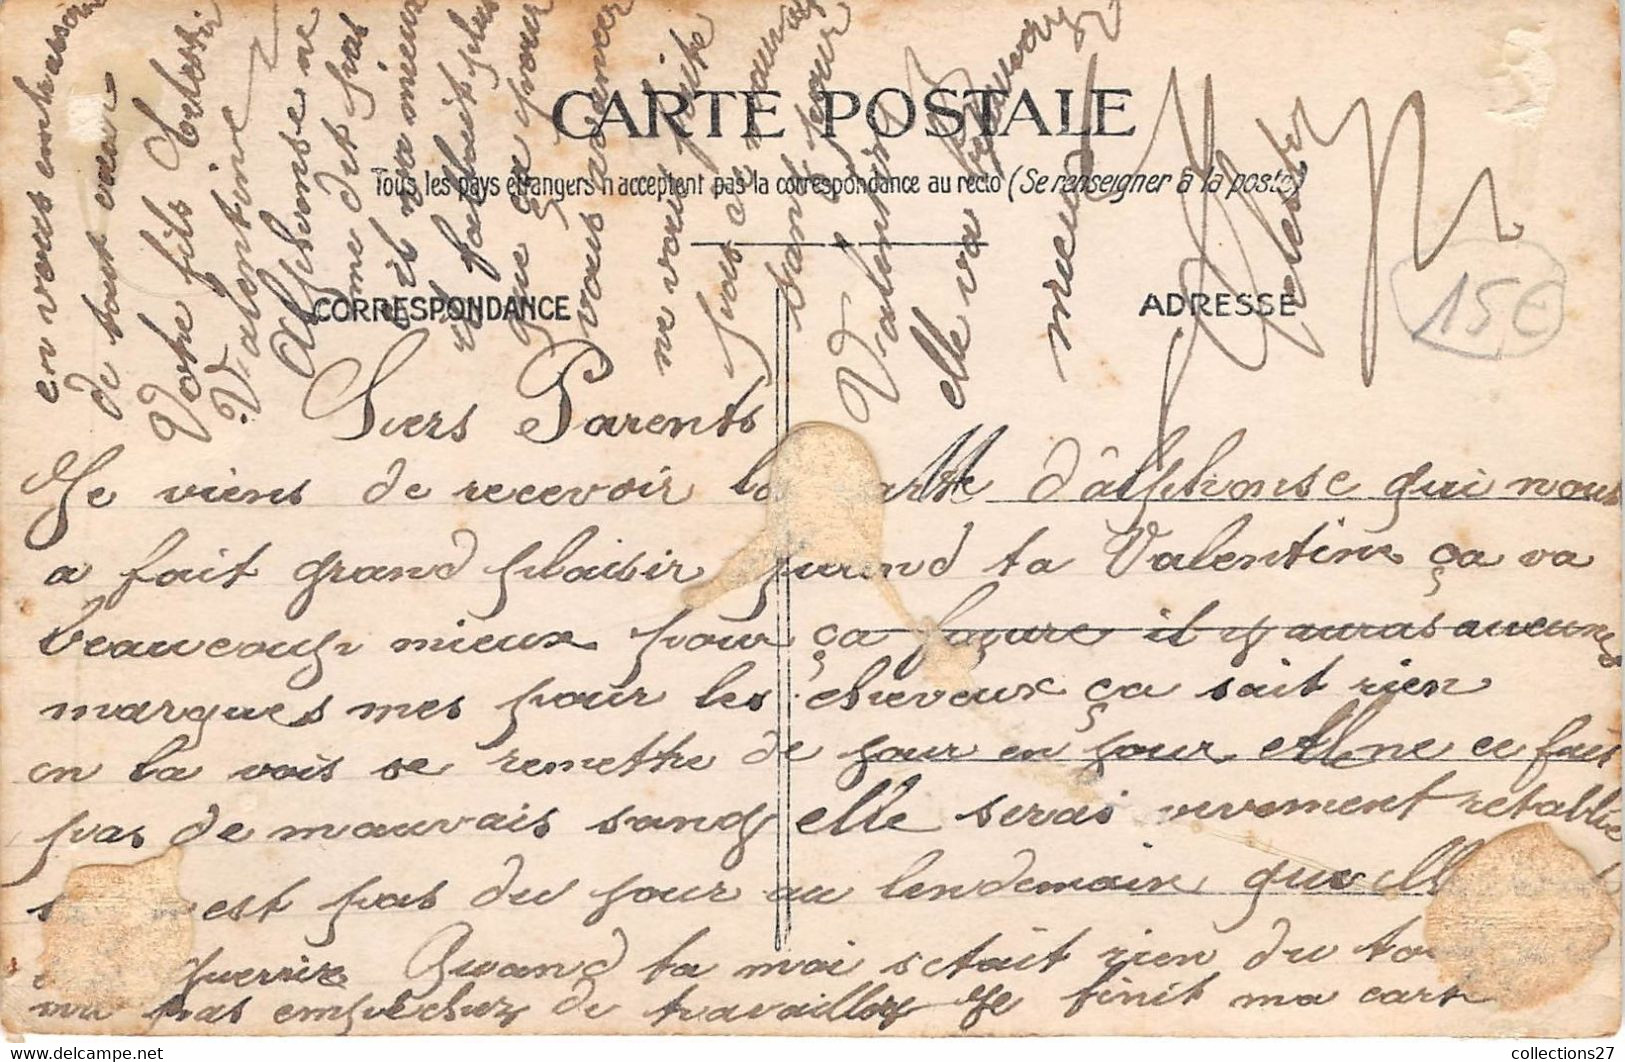 CARTE POSTALE
Tous les pays étrangers n'acceptent pas la correspondance au recto (Se renseigner à la poste)
CORRESPONDANCE
ADRESSE
15€
Parents
Je viens de recevoir la carte d'alphonse qui nous
a fait grand plaisir quand ta Valentine ça va
beaucoup mieux pour ça figure il y auras aucunes
marques mes pour les cheveux ça sait rien
on la vois se remettre de jour en jour elle ne ce fais
pas de mauvais sang elle serai vivement retablie
est pas du jour au lendemain que elle
guerrire Quand ta moi setait rien du
pas empechez de travailler Je finit ma carte
en vous embrassant
de tout cœur
Votre fils Celestin
Valentine
Alphonse ne
me dit pas
s'il va mieux
il faudrait plus
que ça pour
vous avancer
ne vous faite
pas de mauvais
sang pour
Valentine
elle va beaucoup
mieux
Celestin
collections27